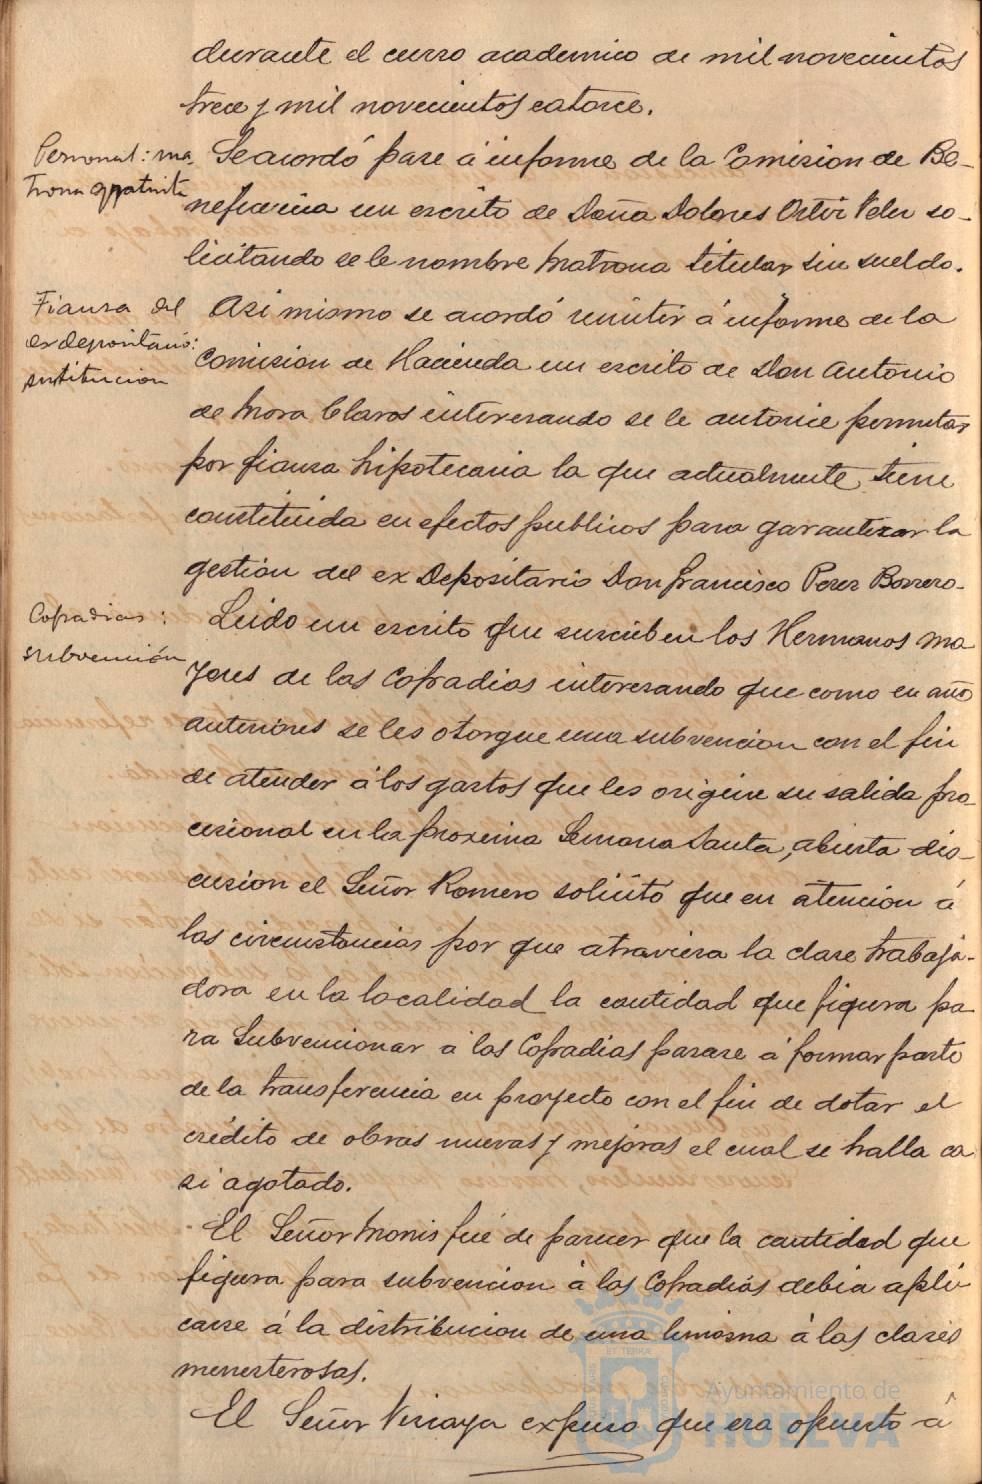 durante el curso academico de mil novecientos
trece y mil novecientos catorce.
Personal: ma-
trona gratuita
Se acordó pase á informe de la Comision de Be-
neficencia un escrito de Doña Dolores Ortiz Velez so-
licitando se le nombre Matrona titular sin sueldo.
Fianza del
ex depositario:
sustitucion
Asi mismo se acordó remitir á informe de la
Comision de Hacienda un escrito de Don Antonio
de Mora Claros interesando se le autorice permutar
por fianza hipotecaria la que actualmente tiene
constituida en efectos publicos para garantizar la
gestion del ex Depositario Don Francisco Perez Borrero.
Cofradias:
subvención
Leido un escrito que suscriben los Hermanos ma
yores de las Cofradias interesando que como en años
anteriores se les otorgue una subvencion con el fin
de atender á los gastos que les origine su salida pro
cesional en la proxima Semana Santa, abierta dis-
cusion el Señor Romero solicitó que en atencion á
las circunstancias por que atraviesa la clase trabaja-
dora en la localidad la cantidad que figura pa
ra Subvencionar á las Cofradias pasase á formar parte
de la transferencia en proyecto con el fin de dotar el
crédito de obras nuevas y mejoras el cual se halla ca
si agotado.
El Señor Monis fué de parecer que la cantidad que
figura para subvencion á las Cofradias debia apli
carse á la distribucion de una limosna á las clases
menesterosas.
El Señor Viscaya expuso que era opuesto á
Ayuntamiento de
HUELVA